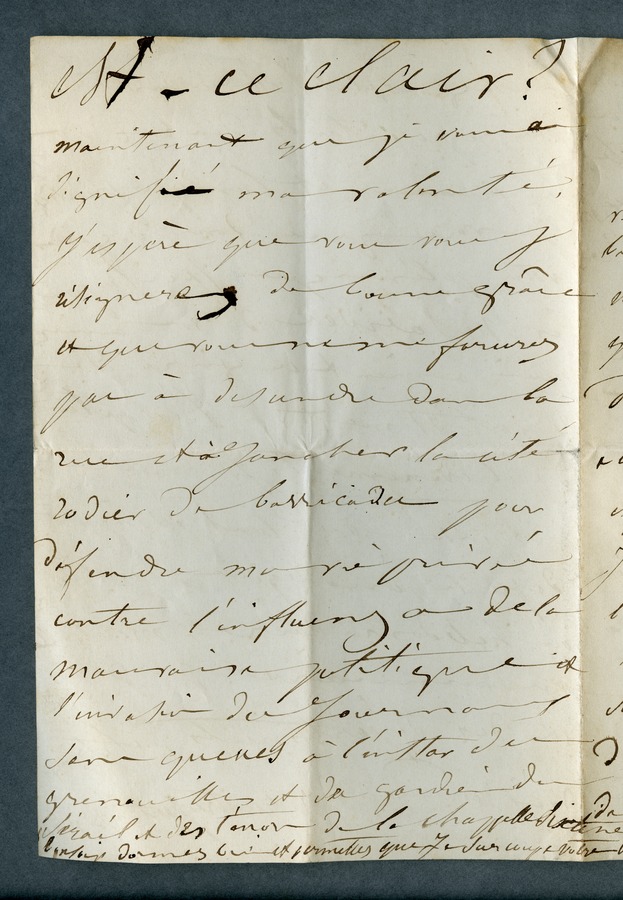 est-ce clair?
maintenant que je vous ai
signifié ma volonté,
j'espère que vous vous y
résignerez de bonne grâce
et que vous ne me forcerez
pas à descendre dans la
rue et à joncher la cité
rodier de barricades pour
défendre ma vie privée
contre l'influenza de la
mauvaise politique et
l'invasion des journaux
sans queues à l'instar des
grenouilles et des gardiens du
sérail et des ténors de la chapelle sixtine
dormez bien et permettez que je